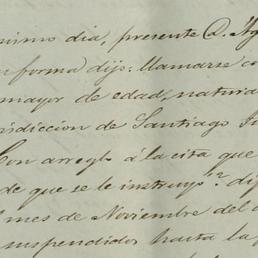 mismo dia, presente D. Ag
forma) dijo: llamarse co
mayor de edad, natura
risdiccion de Santiago
Con arreglo á la cita que
de que se le instruyó? di
mes de Noviembre del
suspendidos hasta la